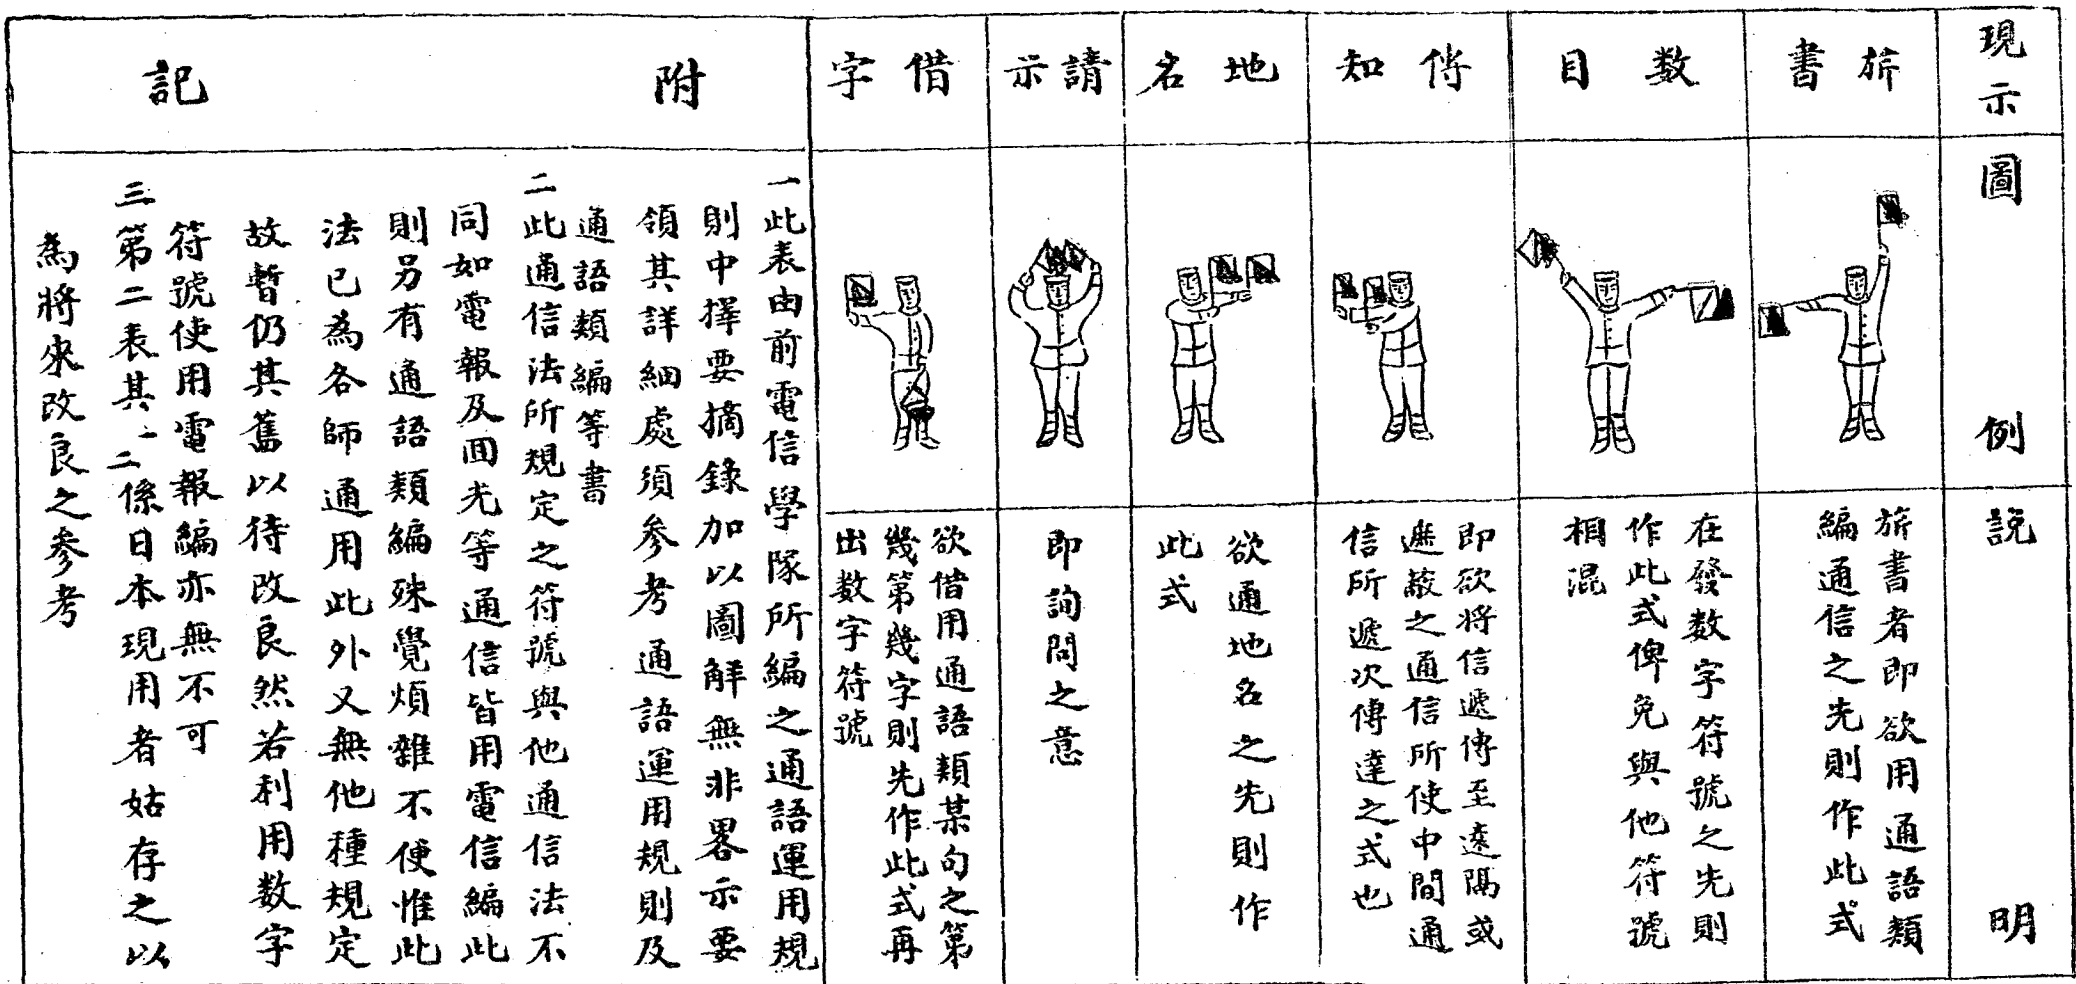 現示
圖例
説明
旂書
旂書者即欲用通語類
編通信之先則作此式
数目
在發数字符號之先則
作此式俾免與他符號
相混
傳知
即欲將信遞傳至遠隔或
遮蔽之通信所使中間通
信所遞次傳達之式也
地名
欲通地名之先則作
此式
請示
即詢問之意
借字
欲借用通語類某句之第
幾第幾字則先作此式再
出数字符號
附記
一此表由前電信學隊所編之通語運用規
則中擇要摘錄加以圖解無非畧示要
領其詳細處須参考通語運用規則及
通語類編等書
二此通信法所規定之符號與他通信法不
同如電報及回光等通信皆用電信編此
則另有通語類編殊覺煩雜不便惟此
法已為各師通用此外又無他種規定
故暫仍其舊以待改良然若利用数字
符號使用電報編亦無不可
三第二表其一二係日本現用者姑存之以
為將來改良之参考